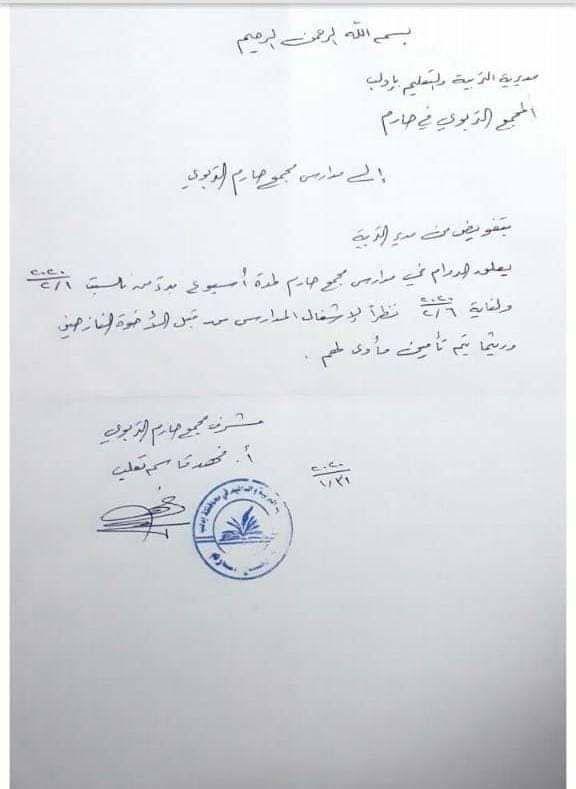 بسم الله الرحمن الرحيم
مديرية التربية والتعليم بإدلب
المجمع التربوي في حارم
إلى مدارس مجمع حارم التربوي
بتفويض من مدير التربية
يعلق الدوام في مدارس مجمع حارم لمدة أسبوع بدءً من السبت ٢/١ ٢٠٢٠
ولغاية ٢/٦ ٢٠٢٠ نظراً لإشغال المدارس من قبل الأخوة النازحين
وريثما يتم تأمين مأوى لهم .
مشرف مجمع حارم التربوي
أ. فهد قاسم تعلب
٢٠٢٠
١/٣١